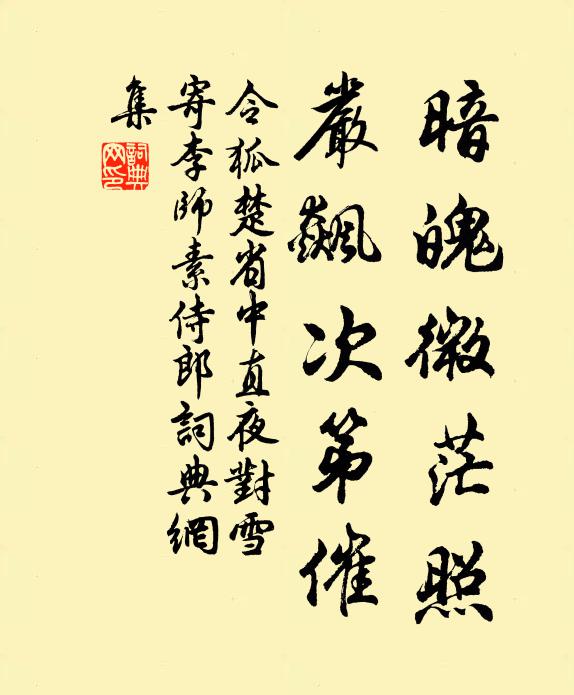 暗魄微茫照
嚴飆次第催
令狐楚省中直夜對雪
寄李師素侍郎詞典網
集
詞典
网印